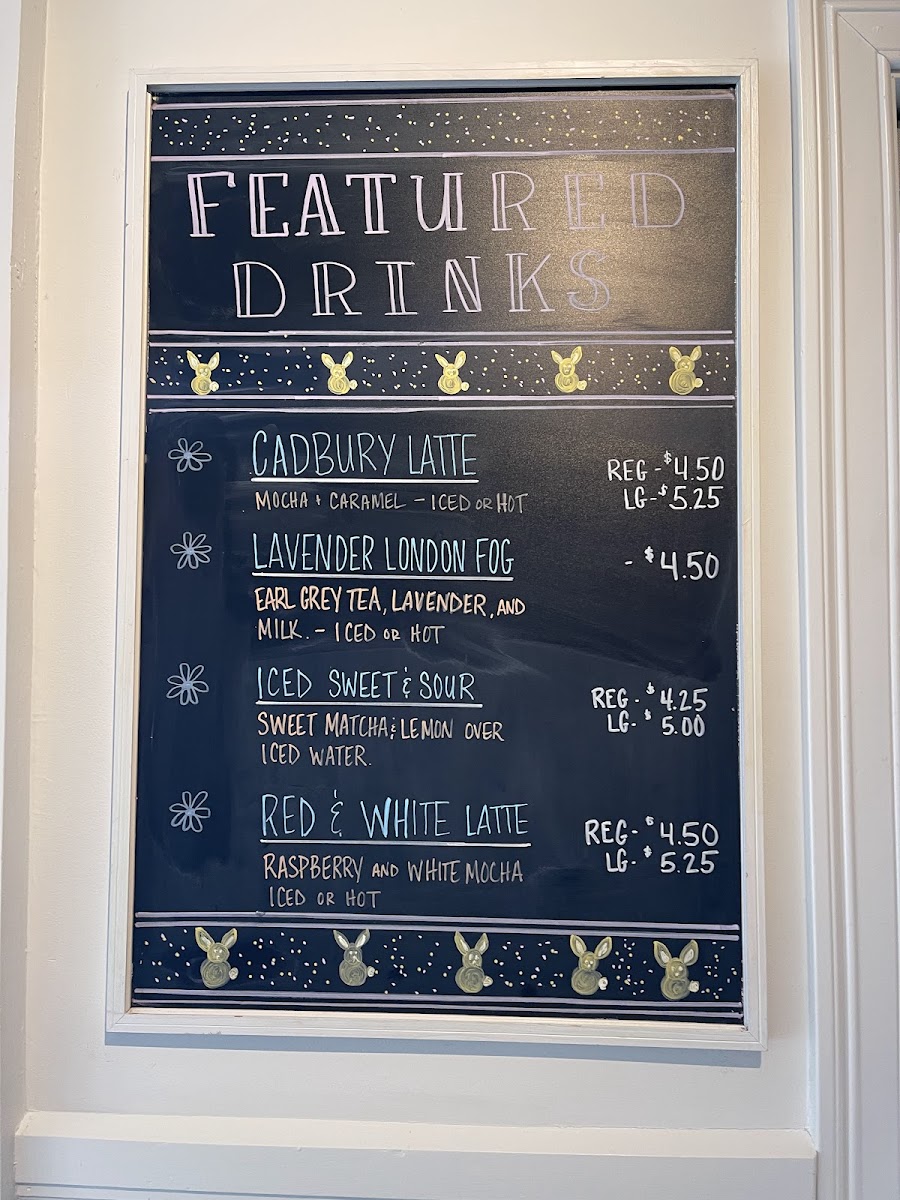 FEATURED
DRINKS
CADBURY LATTE
REG - $4.50
MOCHA + CARAMEL - ICED OR HOT
LG - $5.25
LAVENDER LONDON FOG
- $4.50
EARL GREY TEA, LAVENDER, AND
MILK. - ICED OR HOT
ICED SWEET & SOUR
REG - $4.25
LG - $5.00
SWEET MATCHA & LEMON OVER
ICED WATER.
RED & WHITE LATTE
REG - $4.50
LG - $5.25
RASPBERRY AND WHITE MOCHA
ICED OR HOT